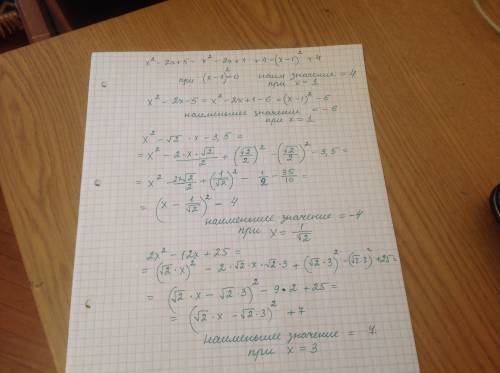 x² - 2x+5 - x² - 2x+1 +4 = (x-1)² + 4
при (x-1)²=0 наим значение = 4
при x = 1
x² - 2x - 5 = x² - 2x+1-6 = (x-1)² - 6
наименьшее значение = -6
при x = 1
x² - √2 · x - 3,5 =
= x² - 2·x·√2/2 + (√2/2)² - (√2/2)² - 3,5 =
= x² - 2x√2/2 + (1/√2)² - 1/2 - 35/10 =
= (x - 1/√2)² - 4
наименьшее значение = -4
при x = 1/√2
2x² - 12x + 25 =
= (√2 · x)² - 2 · √2 · x · √2 · 3 + (√2 · 3)² - (√2 · 3)² + 25 =
= (√2 · x - √2 · 3)² - 9 · 2 + 25 =
= (√2 · x - √2 · 3)² + 7
наименьшее значение = 7
при x = 3